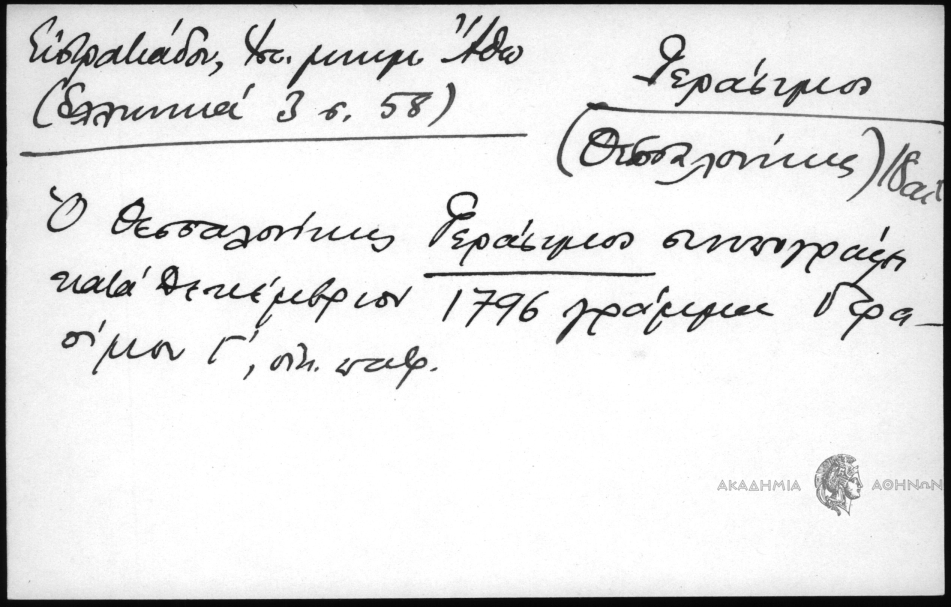 Εὐστρατιάδου, Ἱστ. μνημ. Ἄθω
(Ἑλληνικά 3 σ. 58)
Γεράσιμος
(Θεσσαλονίκης)
Ὁ Θεσσαλονίκης Γεράσιμος συνυπογράφει
κατά Δεκέμβριον 1796 γράμμα Γερα-
σίμου Γ', οἰκ. πατρ.
ΑΚΑΔΗΜΙΑ ΑΘΗΝΩΝ